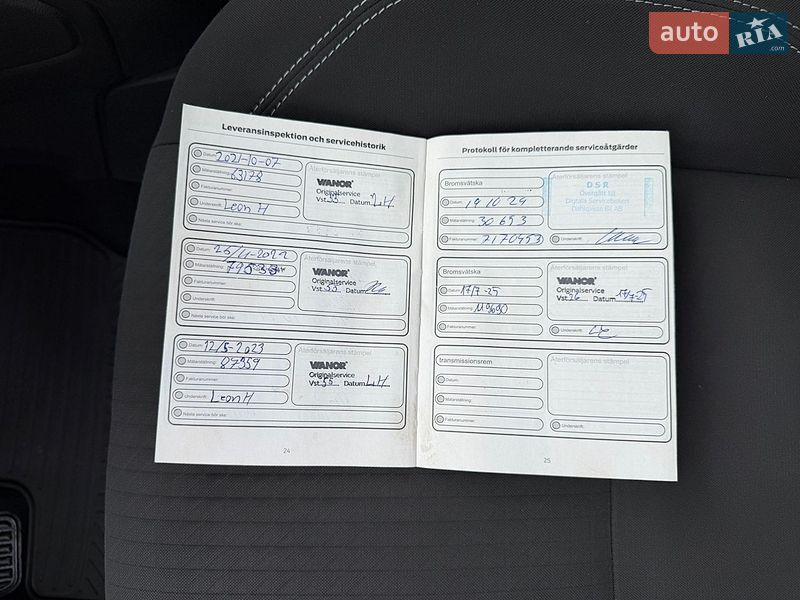 auto RIA .com
Leveransinspektion och servicehistorik
Datum: 2021-10-07
Mätarställning: 63178
Fakturanummer:
Underskrift: Leon H
Nästa service bör ske:
Återförsäljarens stämpel
WANOR
Originalservice
Vst. 55 Datum LH
Datum: 25/11-2022
Mätarställning:
Fakturanummer:
Underskrift:
Nästa service bör ske:
Återförsäljarens stämpel
WANOR
Originalservice
Vst. 55 Datum
Datum: 12/5-2023
Mätarställning: 87359
Fakturanummer:
Underskrift: Leon H
Nästa service bör ske:
Återförsäljarens stämpel
WANOR
Originalservice
Vst. 55 Datum LH
24
Protokoll för kompletterande serviceåtgärder
Bromsvätska
Datum: 19 10 29
Mätarställning: 30 653
Fakturanummer: 7170453
Återförsäljarens stämpel
DSR
Övergått till
Digitala Serviceboken
Underskrift:
Bromsvätska
Datum: 17/7-25
Mätarställning: 119690
Fakturanummer:
Återförsäljarens stämpel
WANOR
Originalservice
Vst. 26 Datum 17/7-25
Underskrift:
transmissionsrem
Datum:
Mätarställning:
Fakturanummer:
Återförsäljarens stämpel
Underskrift:
25